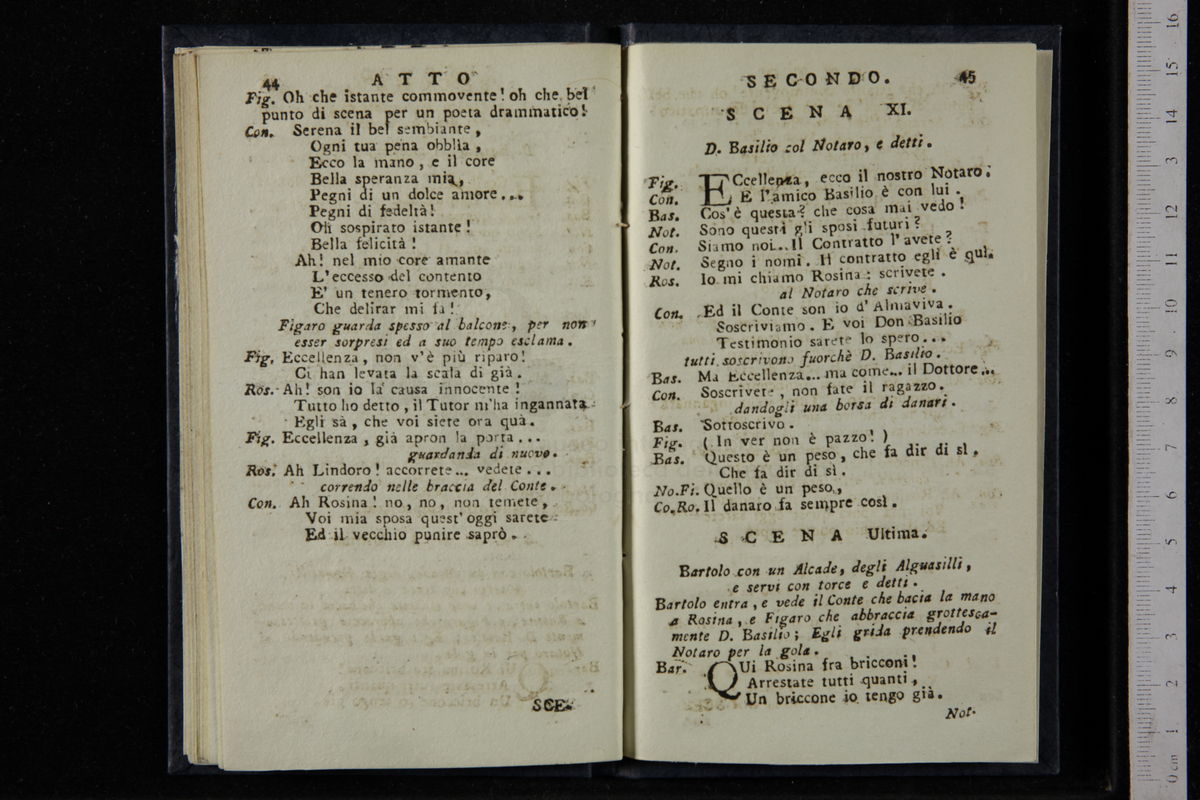 44 ATTO
Fig. Oh che istante commovente! oh che bel
punto di scena per un poeta drammatico!
Con. Serena il bel sembiante,
Ogni tua pena obblia,
Ecco la mano, e il core
Bella speranza mia,
Pegni di un dolce amore...
Pegni di fedeltà!
Oh sospirato istante!
Bella felicità!
Ah! nel mio core amante
L'eccesso del contento
E' un tenero tormento,
Che delirar mi fa!
Figaro guarda spesso al balcone, per non
esser sorpresi ed a suo tempo esclama.
Fig. Eccellenza, non v'è più riparo!
Ci han levata la scala di già.
Ros. Ah! son io la causa innocente!
Tutto ho detto, il Tutor m'ha ingannata
Egli sà, che voi siete ora quà.
Fig. Eccellenza, già apron la porta...
guardanda di nuovo.
Ros. Ah Lindoro! accorrete... vedete...
correndo nelle braccia del Conte.
Con. Ah Rosina! no, no, non temete,
Voi mia sposa quest'oggi sarete
Ed il vecchio punire saprò.
SCE-
SECONDO. 45
SCENA XI.
D. Basilio col Notaro, e detti.
Fig. ECcellenza, ecco il nostro Notaro:
Con. E l'amico Basilio è con lui.
Bas. Cos'è questa? che cosa mai vedo!
Not. Sono questi gli sposi futuri?
Con. Siamo noi... Il Contratto l'avete?
Not. Segno i nomi. Il contratto egli è quì.
Ros. Io mi chiamo Rosina: scrivete.
al Notaro che scrive.
Con. Ed il Conte son io d'Almaviva.
Soscriviamo. E voi Don Basilio
Testimonio sarete lo spero...
tutti soscrivono fuorchè D. Basilio.
Bas. Ma Eccellenza... ma come... il Dottore...
Con. Soscrivete, non fate il ragazzo.
dandogli una borsa di danari.
Bas. Sottoscrivo.
Fig. (In ver non è pazzo!)
Bas. Questo è un peso, che fa dir di sì,
Che fa dir di sì.
No.Fi. Quello è un peso,
Co.Ro. Il danaro fa sempre così.
SCENA Ultima.
Bartolo con un Alcade, degli Alguasilli,
e servi con torce e detti.
Bartolo entra, e vede il Conte che bacia la mano
a Rosina, e Figaro che abbraccia grottesca-
mente D. Basilio; Egli grida prendendo il
Notaro per la gola.
Bar. QUi Rosina fra bricconi!
Arrestate tutti quanti,
Un briccone io tengo già.
Not.
16
15
14
13
12
11
10
9
8
7
6
5
4
3
2
1
0 cm